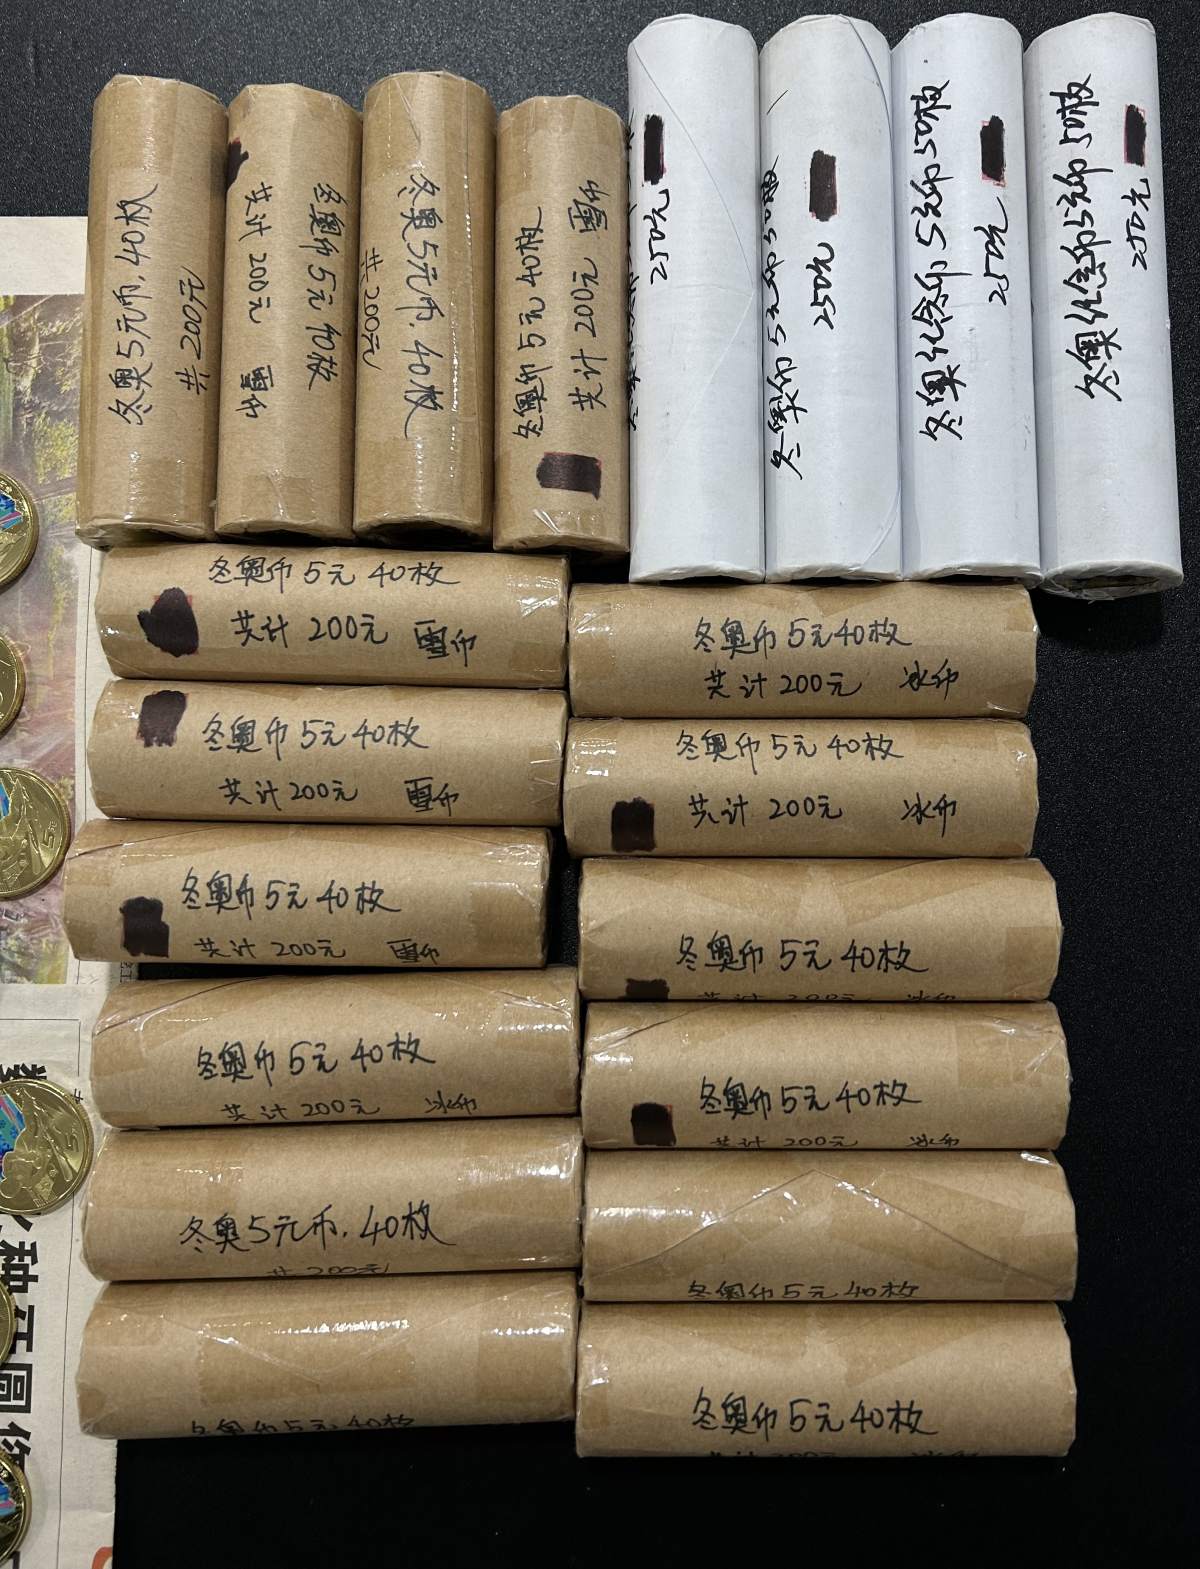 冬奥5元币,40枚
共200元
冬奥币 5元 40枚
共计 200元 雪币
冬奥5元币,40枚
共200元
冬奥币 5元 40枚
共计 200元 雪币
250元
冬奥币 5元币 50枚
250元
冬奥纪念币 5元币 50枚
250元
冬奥纪念币5元币 50枚
250元
冬奥币 5元 40枚
共计 200元 雪币
冬奥币 5元 40枚
共计 200元 冰币
冬奥币 5元 40枚
共计 200元 雪币
冬奥币 5元 40枚
共计 200元 冰币
冬奥币 5元 40枚
共计 200元 雪币
冬奥币 5元 40枚
共计 200元 冰币
冬奥币 5元 40枚
共计 200元 冰币
冬奥币 5元 40枚
共计 200元 冰币
冬奥5元币,40枚
共 200元
冬奥币 5元 40枚
冬奥币 5元 40枚
冬奥币 5元 40枚
共计 200元 冰币
5元
5